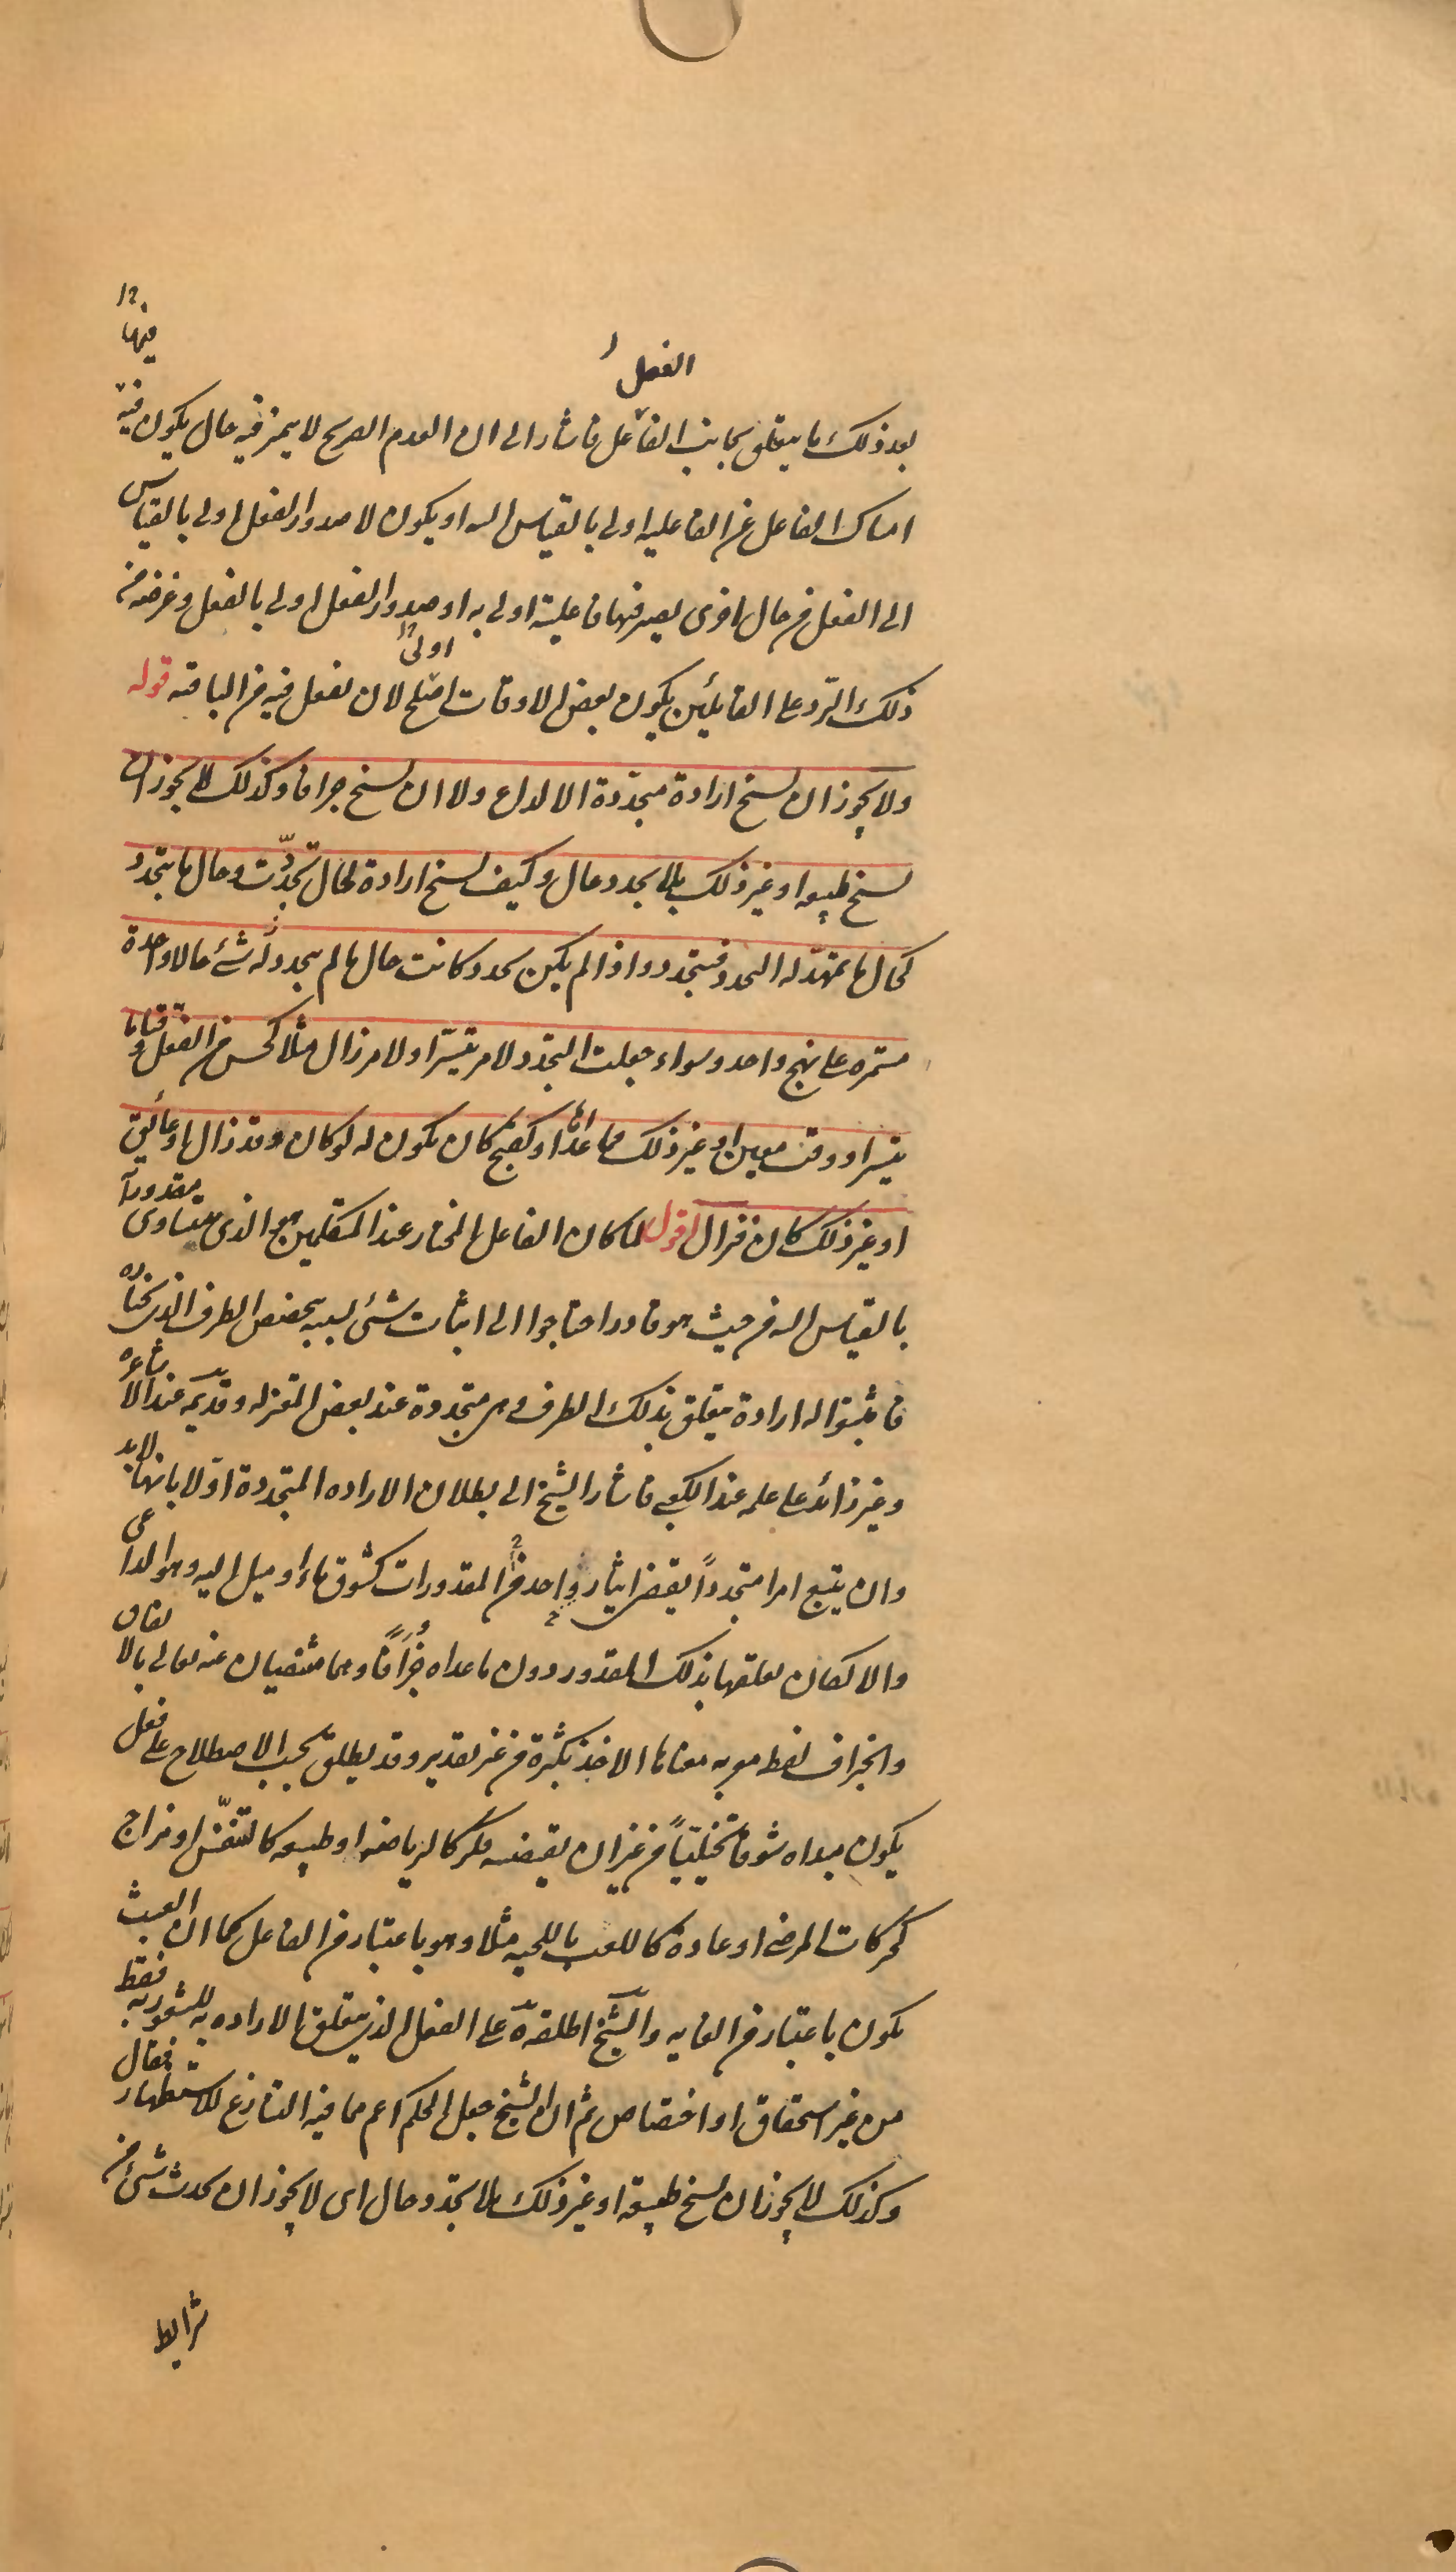 فيها
الفعل
بعد ذلك ما يتعلق بجانب الفاعل فاشار الى ان العدم الصريح لا يميز فيه حال يكون فيه
امساك الفاعل عن الفاعليه اولى بالقياس اليه او يكون لا صدور الفعل اولى بالقياس
الى الفعل من حال اخرى يصير فيها فاعليته اولى به او صدور الفعل اولى بالفعل وغرضه من
اولى
ذلك الرّد على القايلين بكون بعض الاوقات اصلح لان يفعل فيه من الباقيه قوله
ولا يجوز ان يسنح ارادة متجدّدة الا لداع ولا ان يسنح جزافا وكذلك لا يجوز ان
يسنح طبيعه او غير ذلك بلا تجدد حال وكيف يسنح ارادة لحال تجدّدت وحال ما يتجدد
كحال ما يمهّد له التجدد فيتجدد واذا لم يكن تجدد كانت حال ما لم يتجدد له شئ حالا واحدة
مستمره على نهج واحد وسواء جعلت التجدد لامر تيسّر او لامر زال مثلا كحسن من الفعل وقتا ما
تيسر او وقت معين او غير ذلك مما عدّ او كقبح كان يكون له لو كان وقد زال او عائق
او غير ذلك كان فزال اقول لما كان الفاعل المختار عند المتكلمين هو الذى يتساوى مقدوراته
بالقياس اليه من حيث هو قادر احتاجوا الى اثبات شئ بسببه يتخصص الطرف الذى يختاره
فاثبتوا له ارادة يتعلق بذلك الطرف هى متجددة عند بعض المعتزله وقديمه عند الاشاعره
وغير زائد على علمه عند الكعبى فاشار الشيخ الى بطلان الاراده المتجددة اوّلا بانها لا بد
وان يتبع امرا متجدداً يقتضى ايثار واحد من المقدورات كشوق ما او ميل اليه وهو الداعى
والا لكان تعلقها بذلك المقدور دون ما عداه جُزافاً وهما منفيان عنه تعالى بالاتفاق
والجزاف لفظ معربه معناها الاخذ بكثرة من غير تقدير وقد يطلق بحسب الاصطلاح على فعل
يكون مبداه شوقا تخيلياً من غير ان يقتضيه فكر كالرياضه او طبيعه كالتنفّس او مزاج
كحركات المرضى او عادة كاللعب باللحيه مثلا وهو باعتبار من الفاعل كما ان العبث
يكون باعتبار من الغايه والشيخ اطلقه على الفعل الذى يتعلق الاراده به للشعور به فقط
من غير استحقاق او اختصاص ثم ان الشيخ جعل الحكم اعم مما فيه التنازع للاستظهار فقال
وكذلك لا يجوز ان يسنح طبيعة او غير ذلك بلا تجدد حال اى لا يجوز ان يحدث شئ من
شرايط